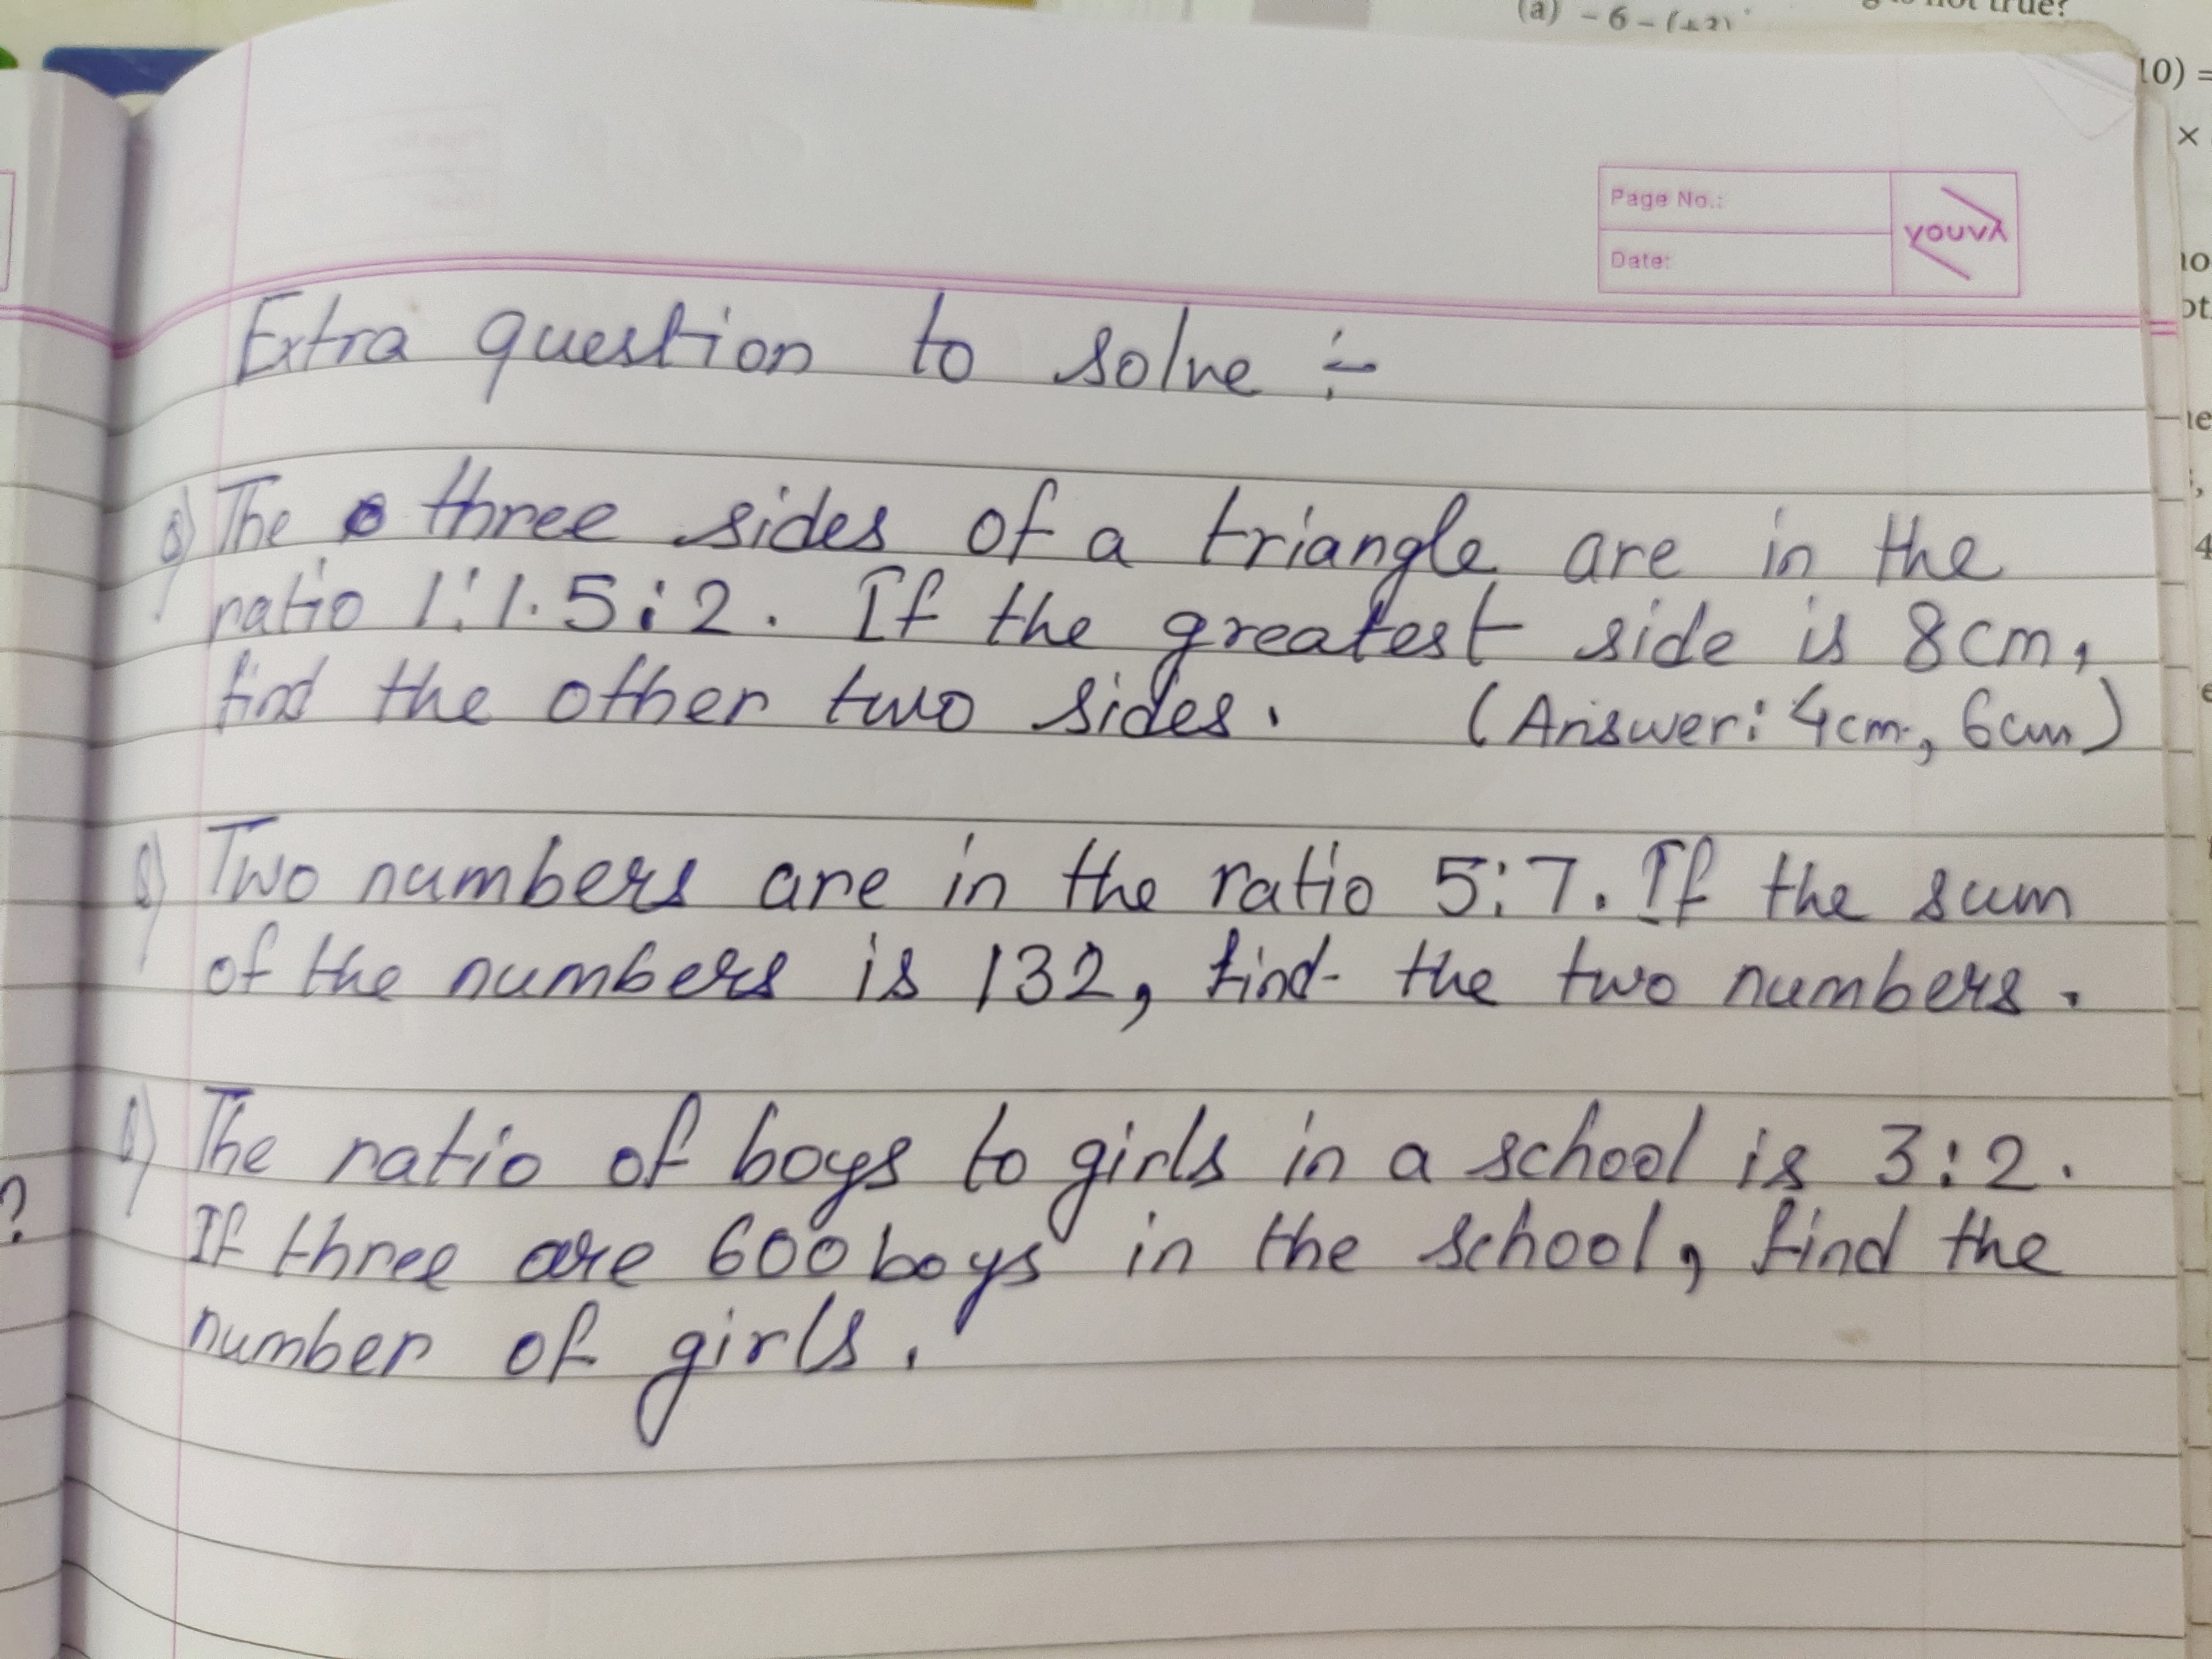 (a) - 6 - (+2)
not true?
10) =
×
Page No.:
Date:
youva
Extra question to solve :-
Q) The three sides of a triangle are in the
ratio 1:1.5:2. If the greatest side is 8cm,
find the other two sides. (Answer: 4cm, 6cm)
Q) Two numbers are in the ratio 5:7. If the sum
of the numbers is 132, find the two numbers.
Q) The ratio of boys to girls in a school is 3:2.
If three are 600 boys in the school, find the
number of girls.
?